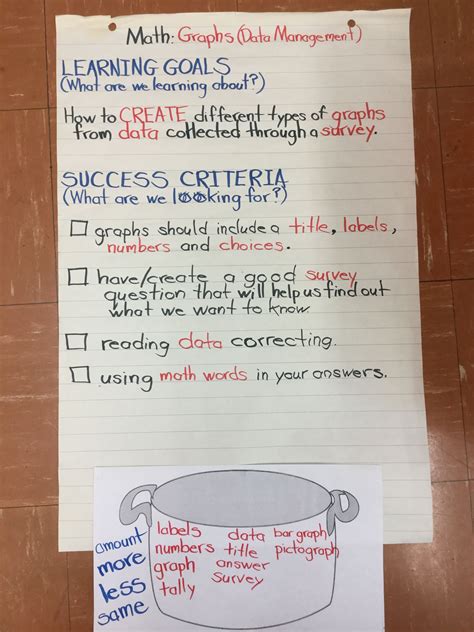 Math: Graphs (Data Management)
LEARNING GOALS
(What are we learning about?)
How to CREATE different types of graphs
from data collected through a survey.
SUCCESS CRITERIA
(What are we looking for?)
graphs should include a title, labels,
numbers and choices.
have/create a good survey
question that will help us find out
what we want to know.
reading data correcting.
using math words in your answers.
amount
more
less
same
labels data bar graph
numbers title pictograph
graph answer
tally survey